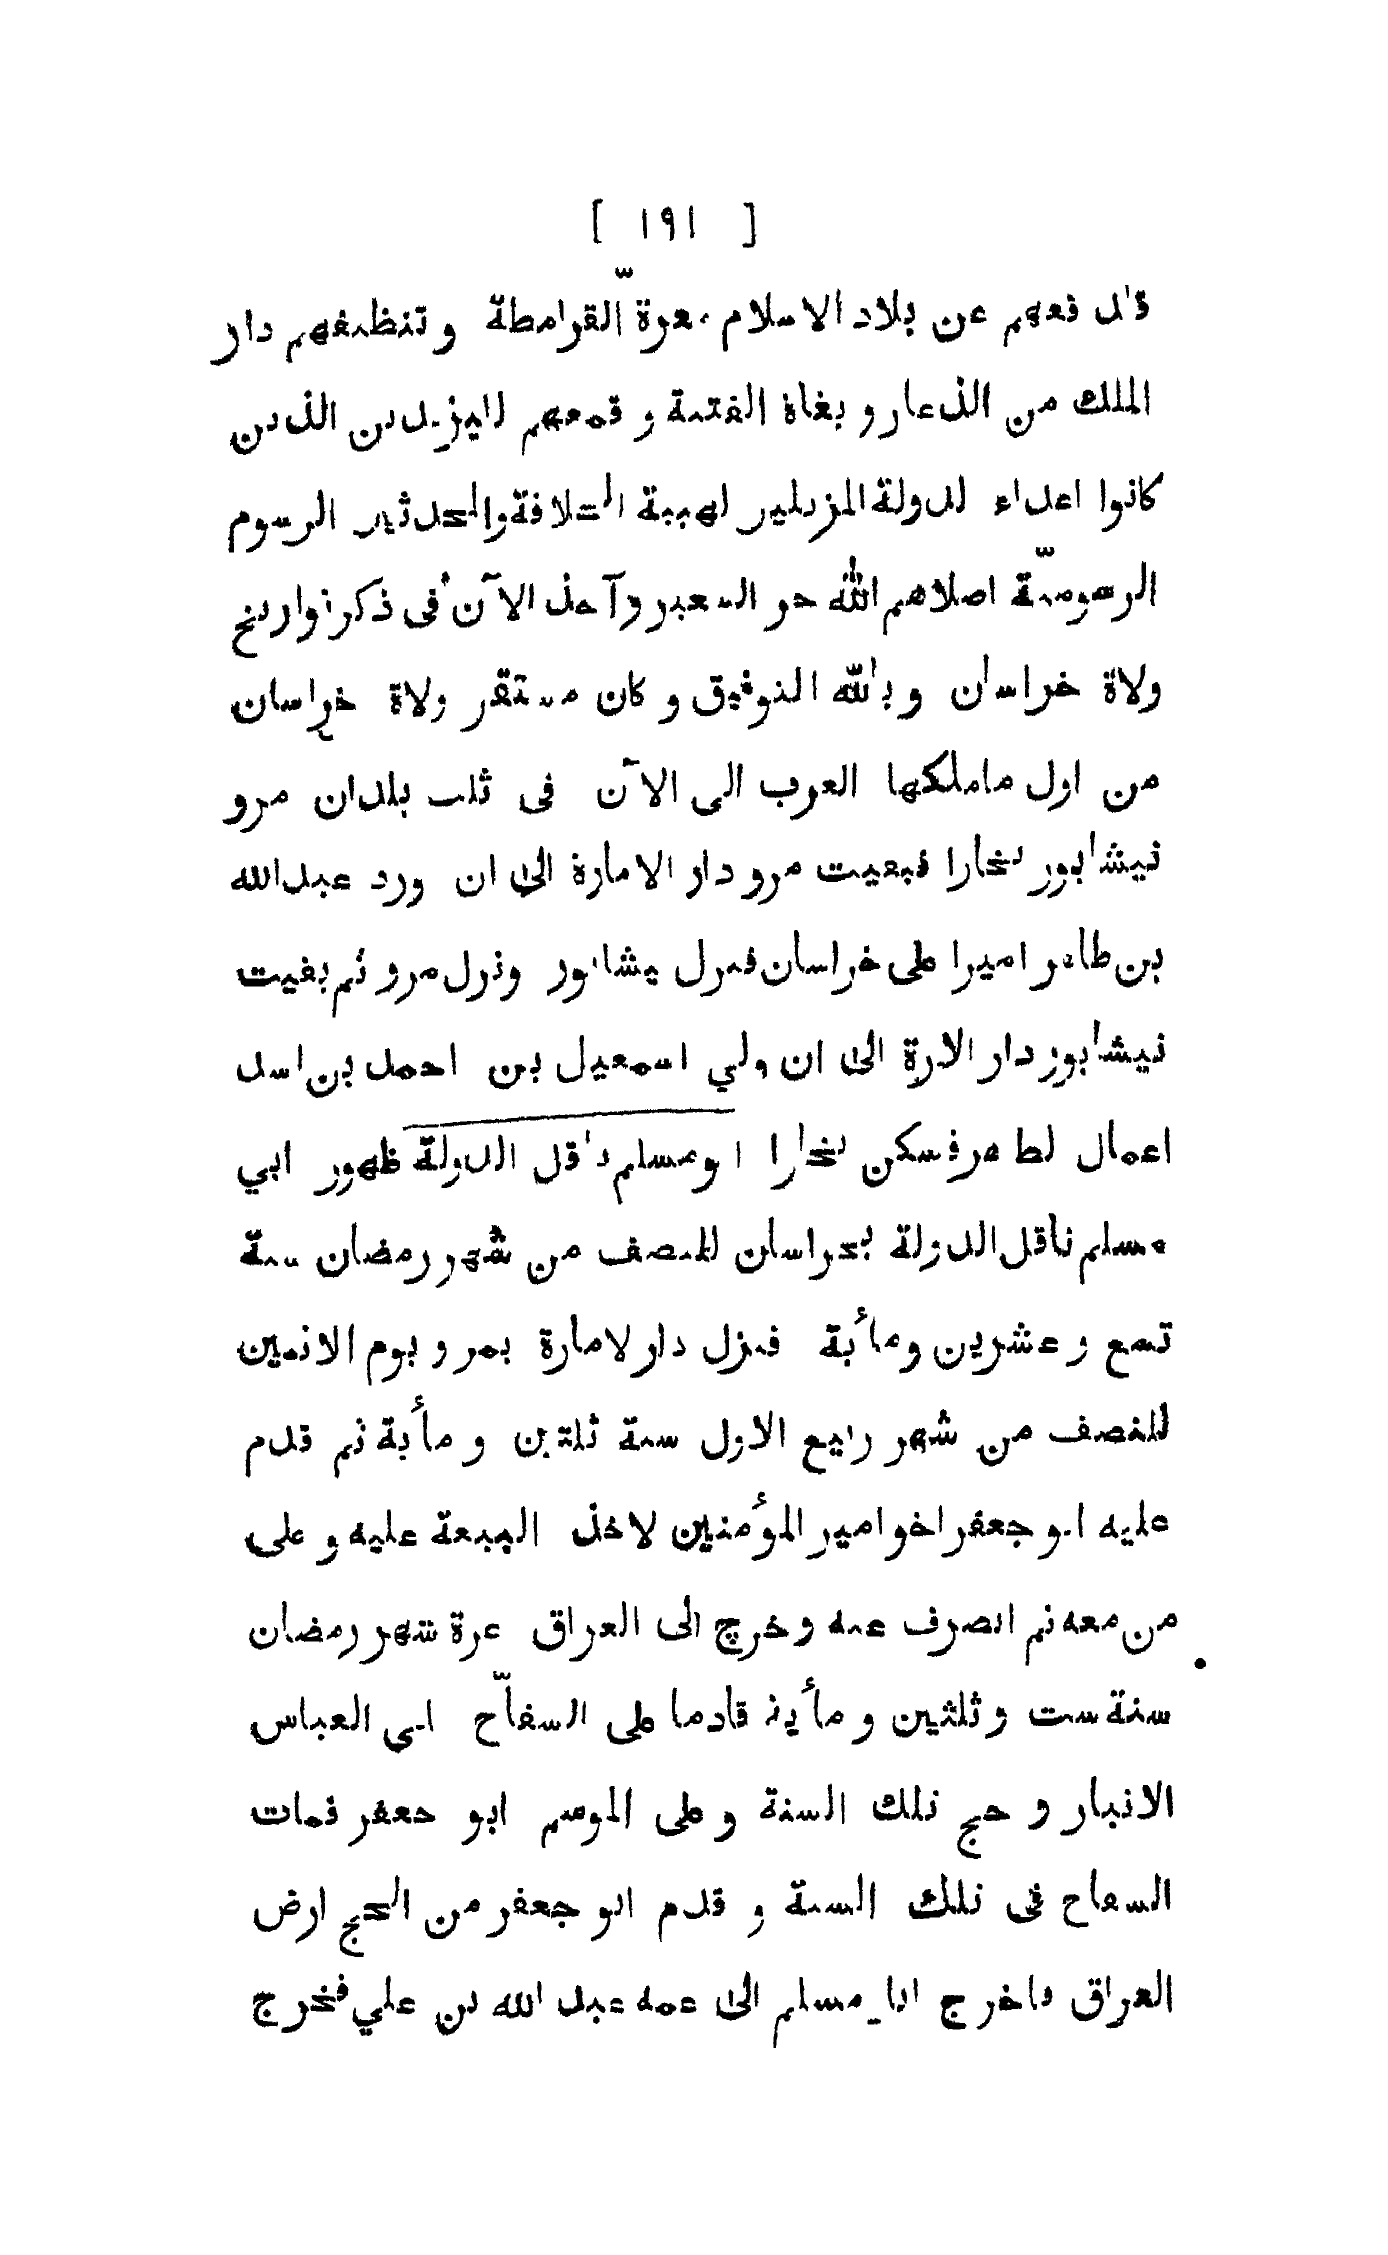 [ ١٩١ ]
فعهم عن بلاد الاسلام معرة القرامطة و تنظيفهم دار
الملك من الذعار و بغاة الفتنة و قمعهم الذين
كانوا اعداء لدولة المزيلين لهيبة الخلافة والمحدثين الرسوم
الله الآن فى ذكر تواريخ
ولاة خراسان و بالله التوفيق و كان مستقر ولاة خراسان
من اول ماملكها العرب الى الآن فى ثلث بلدان مرو
نيشابور بخارا فبعيت مرو دار الامارة الى ان ورد عبدالله
بن طاهر اميرا على خراسان فنزل نيشابور ونزل مرو ثم بفيت
نيشابور دار الارة الى ان ولي اسمعيل بن احمد بن اسد
اعمال لطاهر فسكن بخارا ابو مسلم ناقل الدولة ظهور ابي
مسلم ناقل الدولة بخراسان للنصف من شهر رمضان سنة
تسع و عشرين و مأية فنزل دار لامارة بمرو يوم الاثنين
للنصف من شهر ربيع الاول سنة ثلثين و مأية ثم قدم
عليه ابو جعفر اخو امير المؤمنين لاخذ البيعة عليه و على
من معه ثم انصرف عنه و خرج الى العراق غرة شهر رمضان
سنة ست و ثلثين و مأية قادما على السفاّح ابى العباس
الانبار و حج تلك السنة و على الموسم ابو جعفر فمات
السفاح فى تلك السنة و قدم ابو جعفر من الحج ارض
العراق فاخرج ابا مسلم الى عمه عبد الله بن علي فخرج